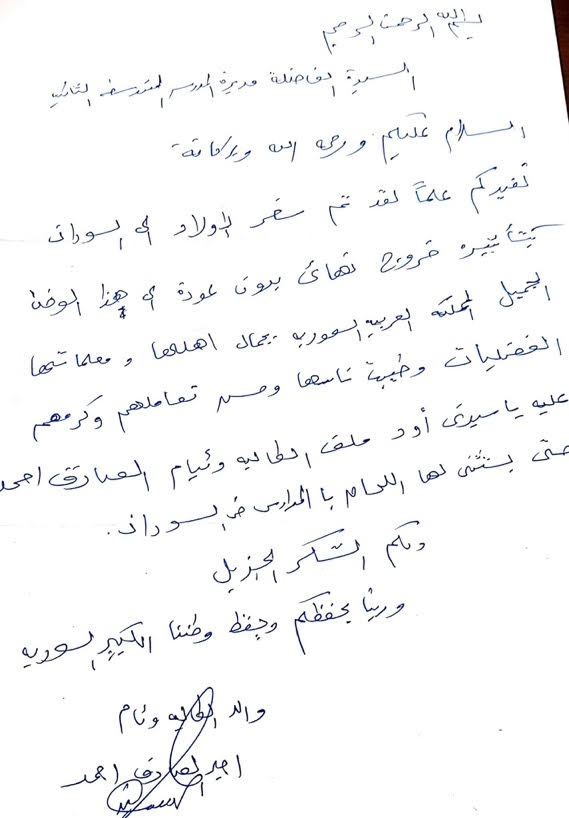 بسم الله الرحمن الرحيم
السيدة الفاضلة مديرة المدرسه المتوسطه الثانيه
السلام عليكم ورحمة الله وبركاتة
نفيدكم علماً لقد تم سفر الاولاد الى السودان
بتأشيره خروج نهائ بدون عودة الى هذا الوطن
الجميل المملكه العربيه السعوديه بجمال اهلها ومعلماتها
الفضليات وطيبة ناسها وحسن تعاملهم وكرمهم
عليه ياسيدتى أود ملف الطالبه وئيام الصادق احمد
حتى يستثنى لها اللحاق با المدارس فى السودان.
ولكم الشكر الجزيل
وربنا يحفظكم ويحفظ وطننا الكبير السعوديه
والد الطالبه وئام
الصادق احمد